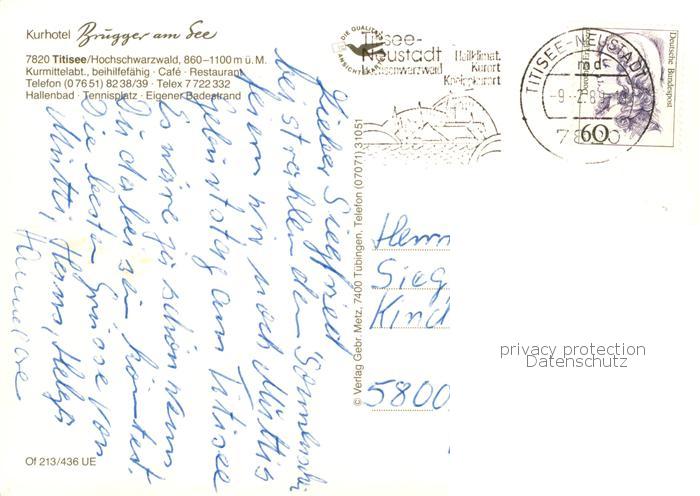 Kurhotel Brugger am See
7820 Titisee/Hochschwarzwald, 860–1100 m ü. M.
Kurmittelabt., beihilfefähig · Café · Restaurant
Telefon (0 76 51) 82 38/39 · Telex 7 722 332
Hallenbad · Tennisplatz · Eigener Badestrand
Lieber Siegfried
bei strahlendem Sonnenschein
feiern wir noch Muttis
Geburtstag am Titisee
Es wäre zu schön wenn
Du dabei sein könntest.
Die besten Grüsse von
Mutti, Heinz, Helga
Hannelore
Of 213/436 UE
© Verlag Gebr. Metz, 7400 Tübingen, Telefon (07071) 31051
DIE QUALITÄTS
ANSICHTSKARTE
Titisee-
Neustadt
Hochschwarzwald
Heilklimat.
Kurort
Kneippkurort
TITISEE-NEUSTADT
md
7820
Deutsche Bundespost
60
Herrn
Sieg
Kind
5800
privacy protection
Datenschutz